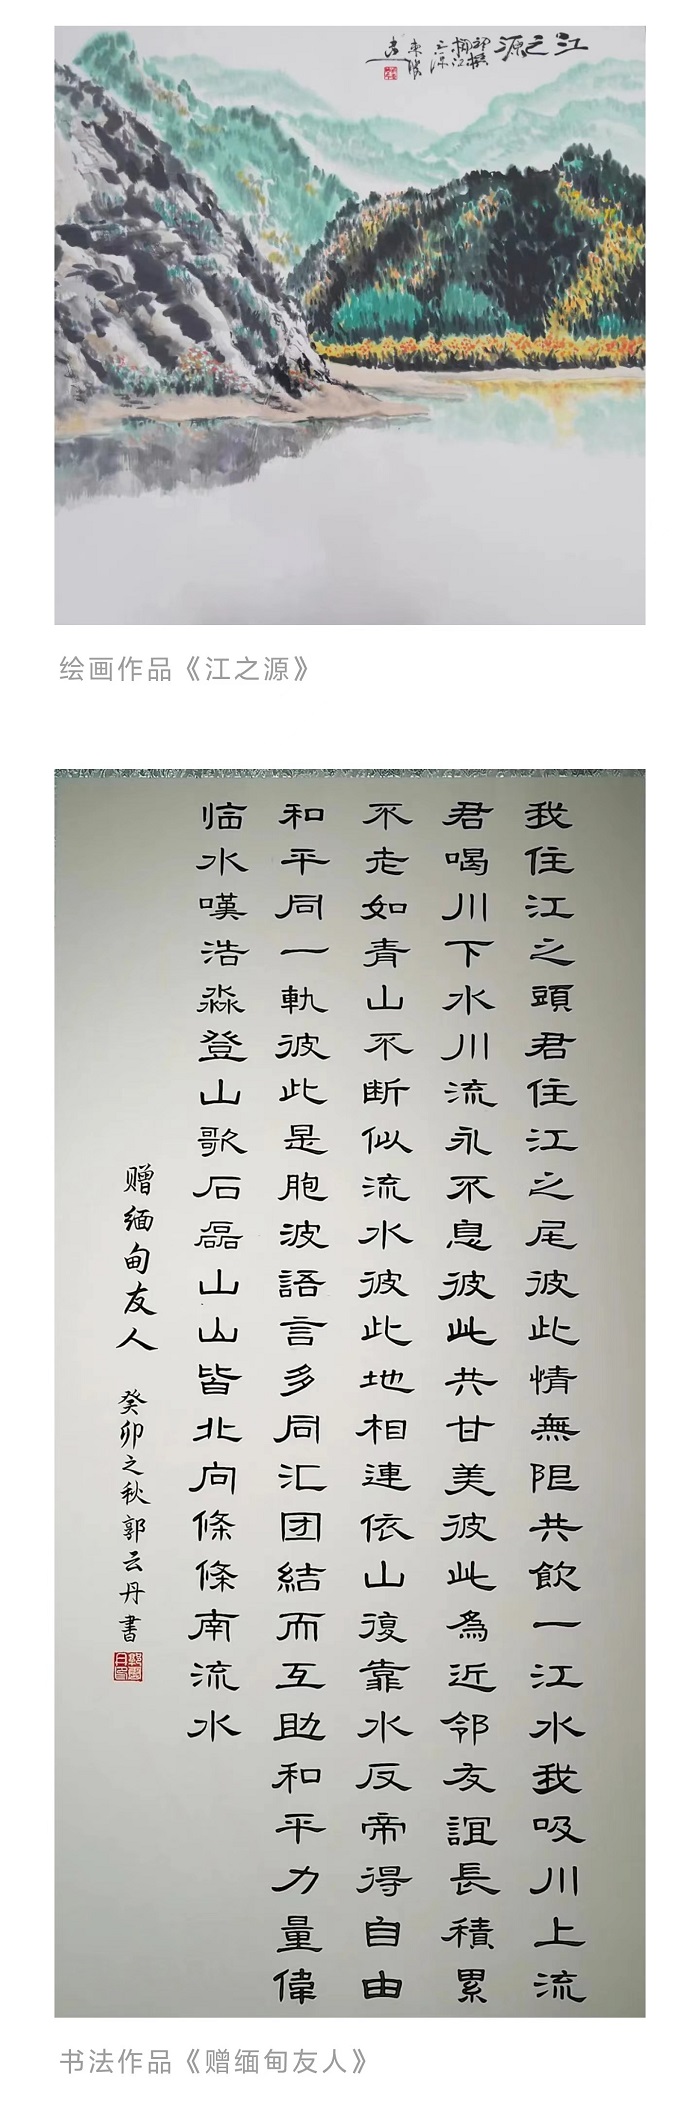 江之源
绘画作品《江之源》
我住江之頭君住江之尾彼此情無限共飲一江水我吸川上流
君喝川下水川流永不息彼此共甘美彼此為近邻友誼長積累
不老如青山不断似流水彼此地相連依山復靠水反帝得自由
和平同一軌彼此是胞波語言多同汇团結而互助和平力量偉
临水嘆浩淼登山歌石磊山山皆北向條條南流水
赠缅甸友人 癸卯之秋郭云丹書
书法作品《赠缅甸友人》